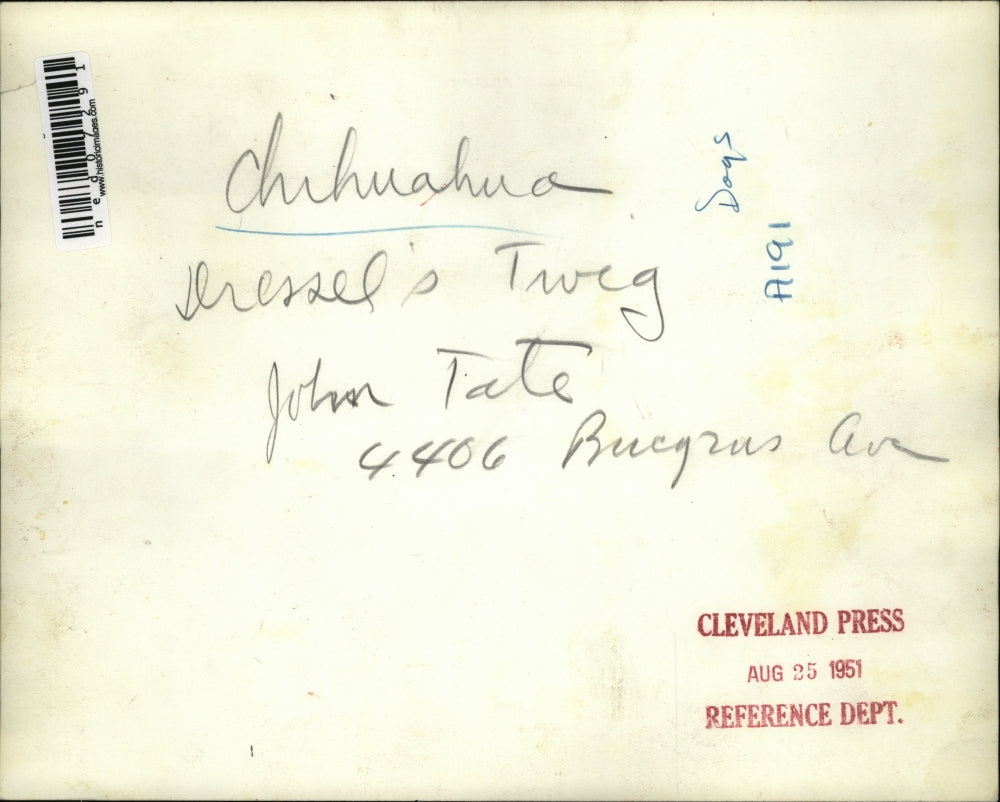 Chihuahua
Dressel's Twig
John Tate
4406 Ave
Dogs
A191
CLEVELAND PRESS
AUG 25 1951
REFERENCE DEPT.
www.historicimages.com